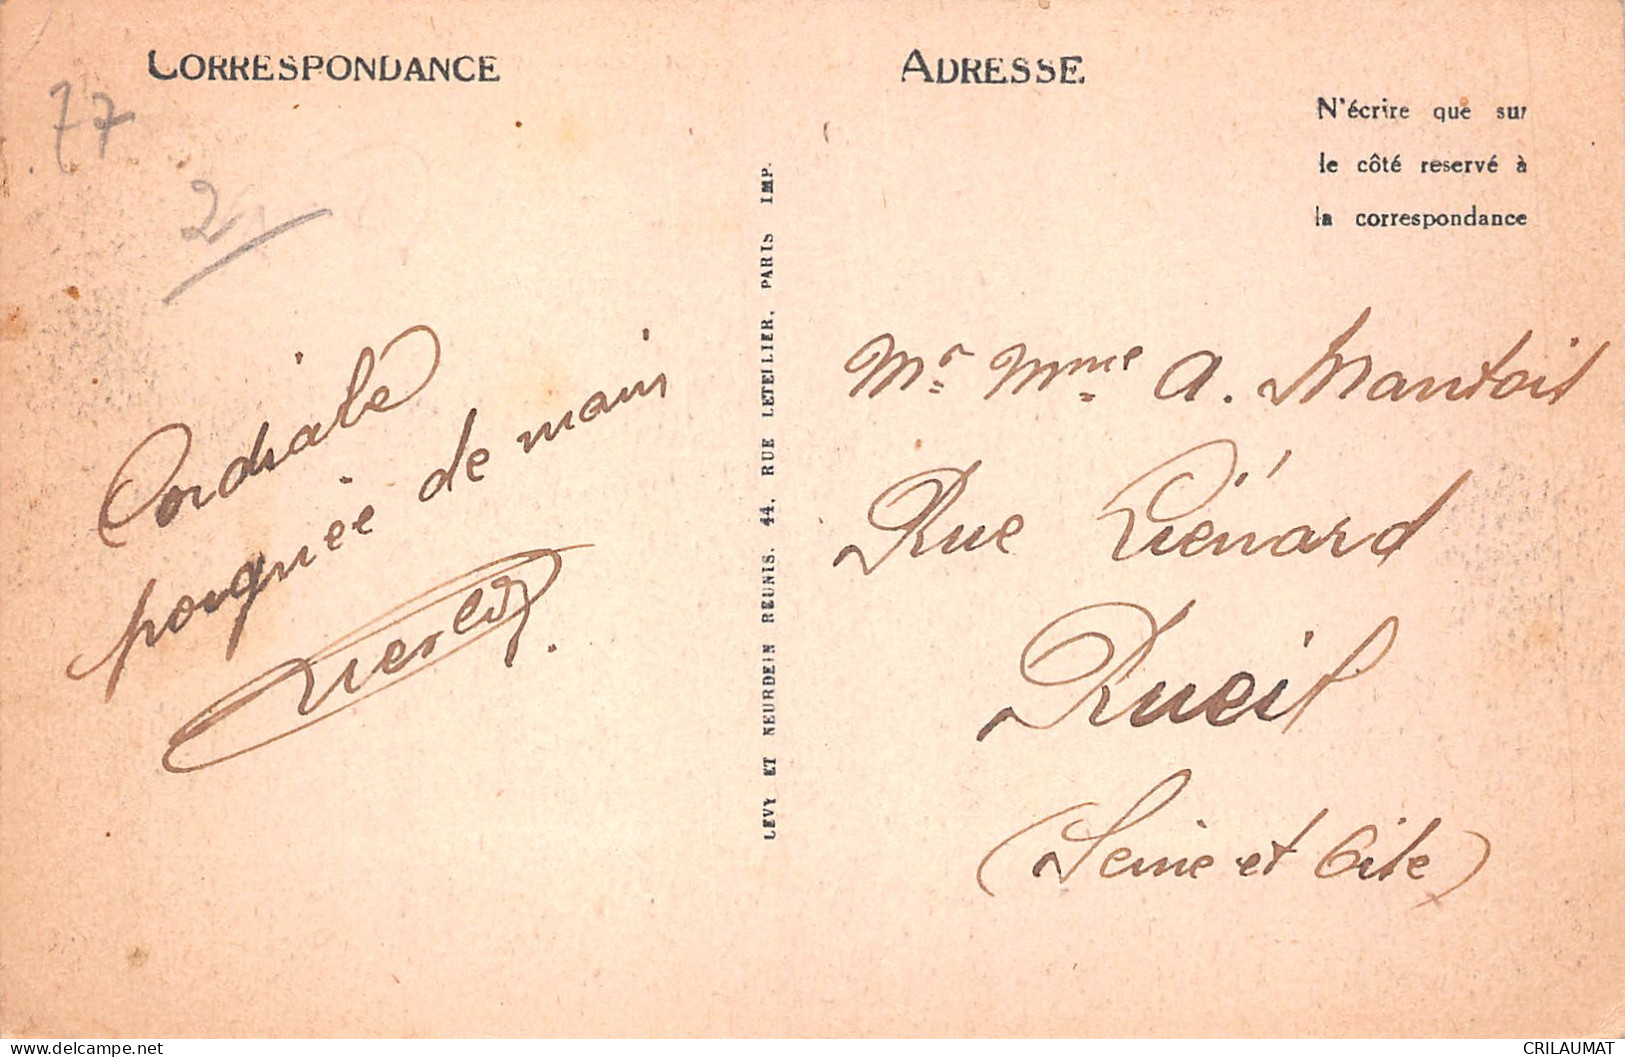 CORRESPONDANCE
77
2
Cordiale
poignée de main
LEVY ET NEURDEIN REUNIS, 44, RUE LETELLIER, PARIS IMP.
ADRESSE
N'écrire que sur
le côté reservé à
la correspondance
Mr Mme A. Mantois
Rue Liénard
Rueil
(Seine et Oise)
CRILAUMAT